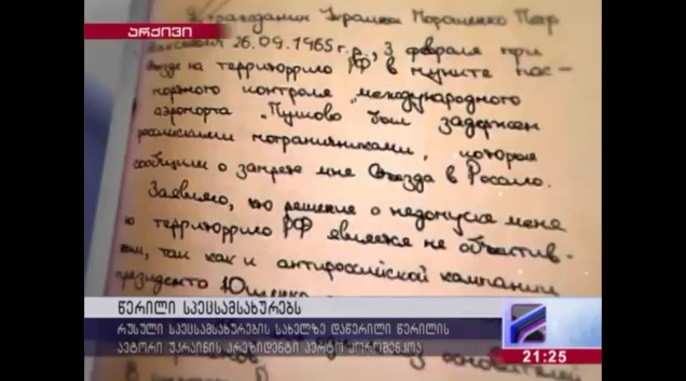 არქივი
Я гражданин Украины Порошенко Петр
26.09.1965 г.р., 3 февраля при
въезде на территоррию РФ в пункте пас-
портного контроля "международного
аэропорта "Пулково был задержан
российскими пограничниками, которые
сообщили о запрете мне въезда в Россию.
Заявляю, что решение о недопуске меня
территоррию РФ является не объектив-
ным, так как и антироссийской кампании
президента Ющенко
წერილი სპეცსამსახურებს
რუსული სპეცსამსახურების სახელზე დაწერილი წერილის
ავტორი უკრაინის პრეზიდენტი პეტრო პოროშენკოა
21:25